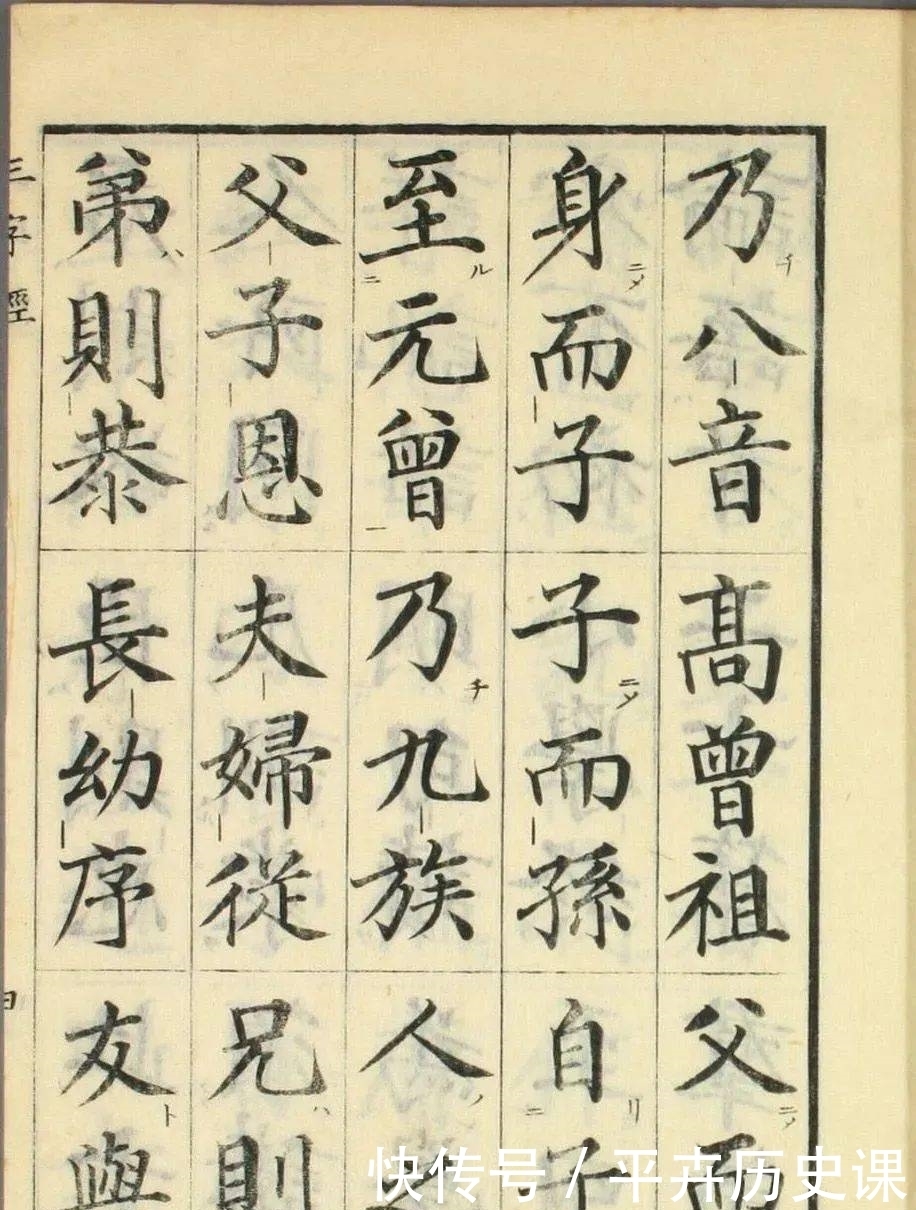 乃八音 高曾祖 父而
身而子 子而孫 自子
至元曾 乃九族 人
父子恩 夫婦從 兄則
弟則恭 長幼序 友與
三字經
快传号 / 平卉历史课